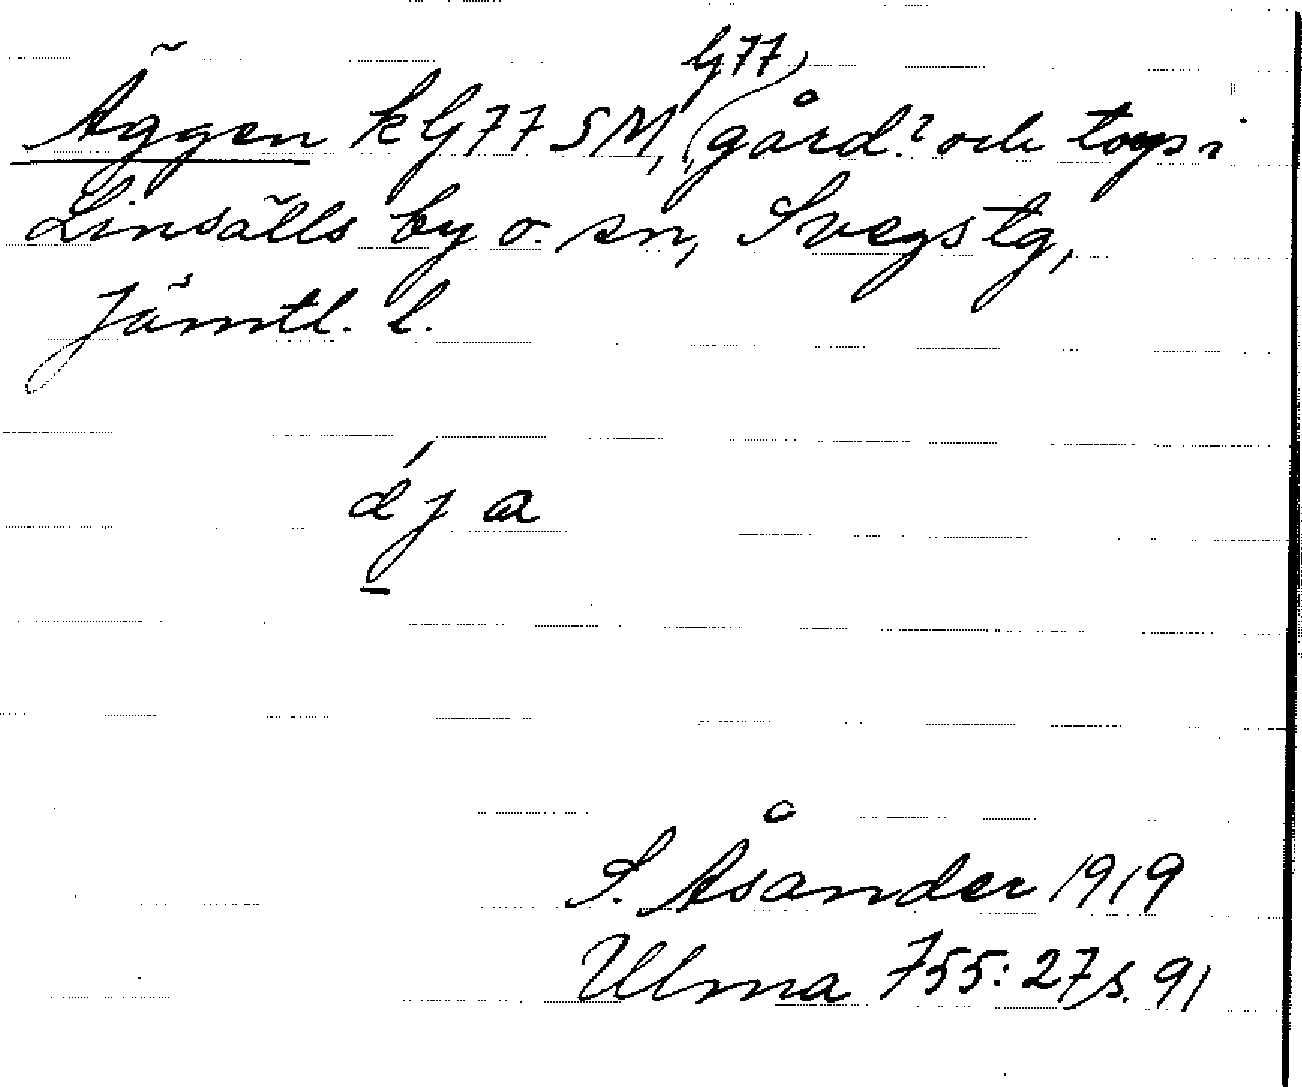 G77
Äggen k G77 SM, (gård? och torp i
Linsälls by o. sn, Svegs tg,
Jämtl. l.
S. Åsander 1919
Ulma 755:27, s. 91